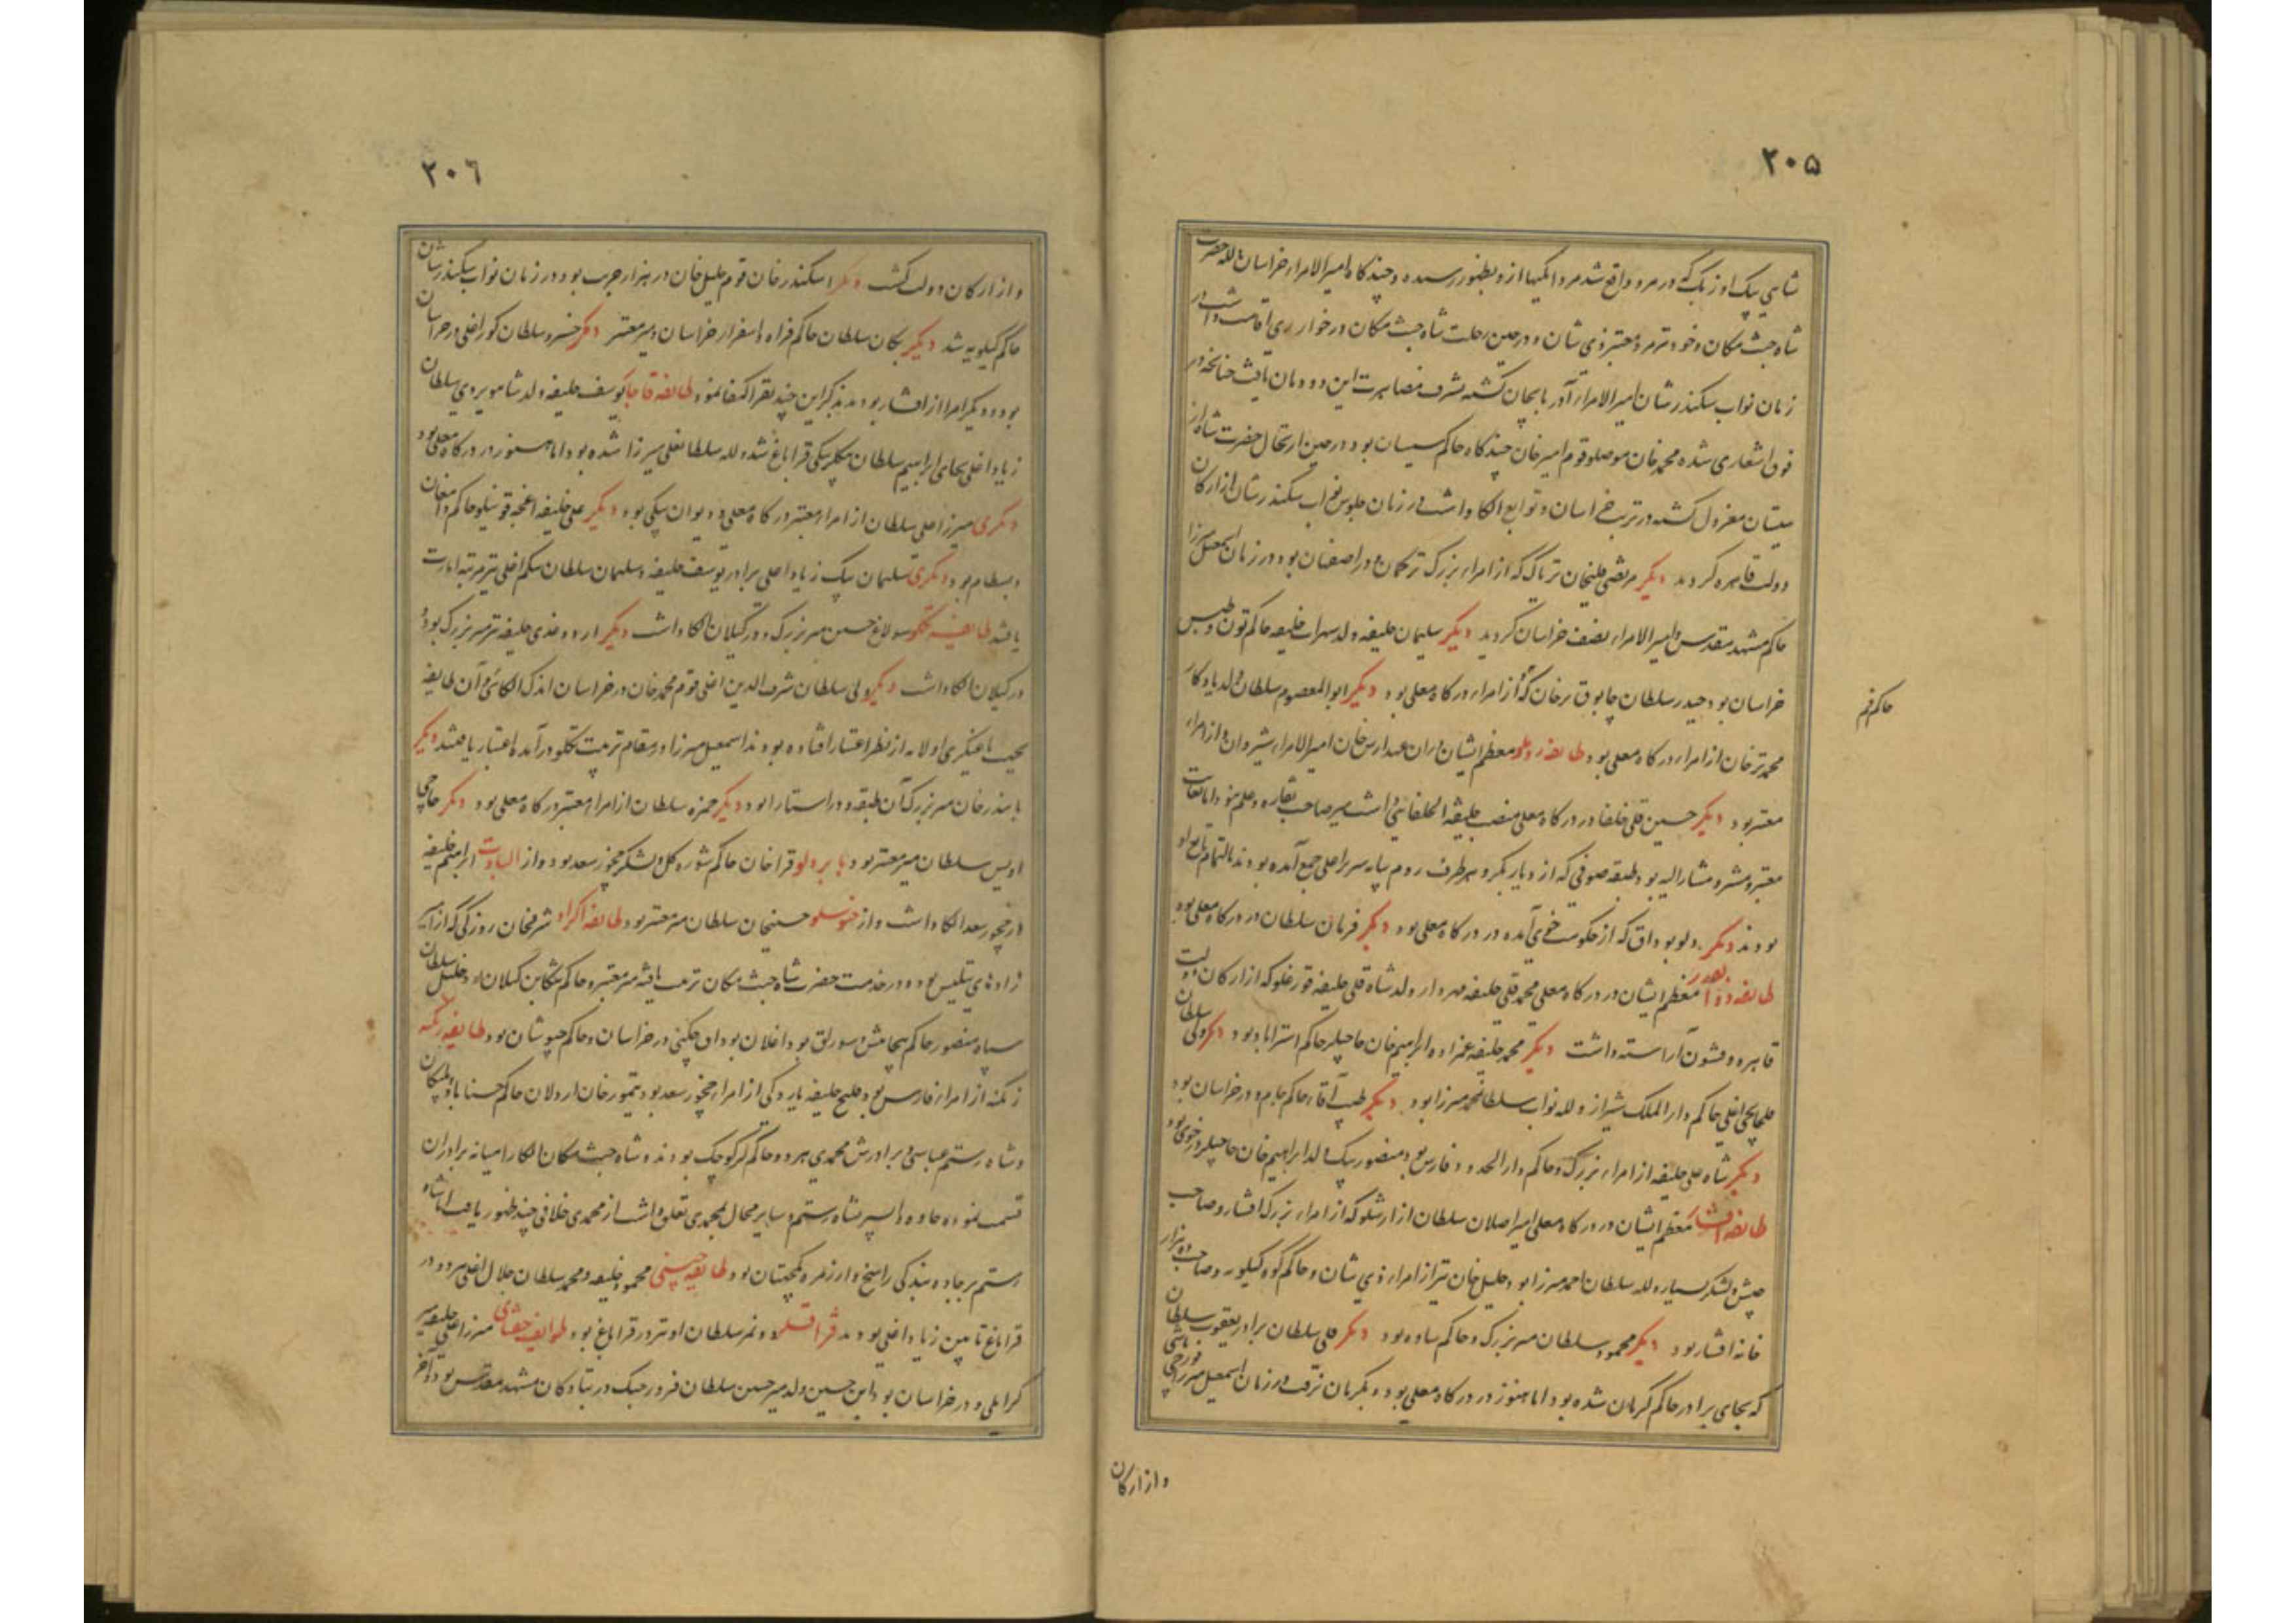 ۲۰۵
شاهی بیک اوزبک که در مرو واقع شد مردانگیها ازو بظهور رسیده و چندگاه امیرالامراء خراسان و لله حضرت
شاه جنت مکان و خود نیز مرد معتبر ذی شان و در حین رحلت شاه جنت مکان در خوار ری اقامت داشت در
زمان نواب سکندرشان امیرالامراء آذربایجان گشته بشرف مصاهرت این دودمان یافت چنانچه در
فوق اشعاری شده محمد خان موصلو قوم امیر خان چندگاه حاکم سیستان بود در حین ارتحال حضرت شاه از
سیستان معزول گشته در تربت خراسان و توابع الکا داشت در زمان جلوس نواب سکندرشان از ارکان
دولت قاهره گردید دیگر مرتضی قلیخان ترپاک که از امراء بزرگ ترکمان و در اصفهان بود در زمان اسمعیل میرزا
حاکم مشهد مقدس و امیرالامراء نصف خراسان گردید دیگر سلیمان خلیفه ولد سهراب خلیفه حاکم تون و طبس
خراسان بود حیدر سلطان چابوق ترخان که از امراء درگاه معلی بود دیگر ابوالمعصوم سلطان ولد یادگار
حاکم قم
محمد ترخان از امراء درگاه معلی بود طایفه روملو معظم ایشان در آن عهد ارس خان امیرالامراء شیروان و از امراء
معتبر بود دیگر حسین قلی خلفا در درگاه معلی منصب خلیفة الخلفائی داشت میر صاحب نقاره و علم نبود اما بغایت
معتبر و مشرو مشار الیه بود و طبقه صوفی که از دیار بکر و هر طرف روم بپایه سریر اعلی جمع آمده بودند بالتمام تابع او
بودند دیگر دلو بوداق که از حکومت خوی آمده در درگاه معلی بود دیگر فرمان سلطان در درگاه معلی بود
طایفه ذوالقدر معظم ایشان در درگاه معلی محمد قلی خلیفه مهردار ولد شاه قلی خلیفه قورغلو که از ارکان دولت
قاهره و قشون آراسته داشت دیگر محمد خلیفه عمزاده ابراهیم خان حاجیلر حاکم استراباد بود دیگر ولی سلطان
قلخانچی اغلی حاکم دار الملک شیراز و لله نواب سلطان محمد میرزا بود دیگر طیب آقا، حاکم جام و در خراسان بود
دیگر شاه علی خلیفه از امراء بزرگ و حاکم دارالحدود فارس بود منصور بیک ولد ابراهیم خان حاجیلر در خوی بود
طایفه افشار معظم ایشان در درگاه معلی امیر اصلان سلطان از ارشلو که از امراء بزرگ افشار و صاحب
جیش و لشکر بسیار و لله سلطان احمد میرزا بود خلیل خان نیز از امراء ذی شان و حاکم کوه کیلویه و صاحب ده هزار
خانه افشار بود دیگر محمود سلطان میر بزرگ و حاکم ساوه بود دیگر علی سلطان برادر یعقوب سلطان
که بجای برادر حاکم کرمان شده بود اما هنوز در درگاه معلی بود و بکرمان نرفت در زمان اسمعیل میرزا قورچی باشی
و از ارکان
۲۰۶
و از ارکان دولت گشت دیگر اسکندر خان قوم خلیل خان در هزار جریب بود در زمان نواب سکندرشان
حاکم کیلویه شد دیگر یکان سلطان حاکم فراه و اسفزار خراسان و میر معتبر دیگر خسرو سلطان کور اغلی در خراسان
بود و دیگر امرا از افشار بودند بذکر این چند نفر اکتفا نمود طایفه قاجار یوسف خلیفه ولد شاهویردی سلطان
زیاد اغلی بجای ابراهیم سلطان بیکلربیکی قراباغ شد و لله سلطانعلی میرزا شده بود اما هنوز در درگاه معلی بود
دیگری میرزا علی سلطان از امراء معتبر درگاه معلی و دیوان بیکی بود دیگر علی خلیفه اغجه قوینلو حاکم دامغان
و بسطام بود دیگری سلیمان بیک زیاد اغلی برادر یوسف خلیفه و سلیمان سلطان سکم اغلی نیز مرتبه امارت
یافتند طایفه تکلو سولاغ حسین میر بزرگ و در گیلان الکا داشت دیگر اردوغدی خلیفه نیز میر بزرگ بود و
در گیلان الکا داشت دیگر ولی سلطان شرف الدین اغلی قوم محمد خان در خراسان اندک الکائی و آن طایفه
بجهت یاغیگری اولامه از نظر اعتبار افتاده بودند اسمعیل میرزا در مقام تربیت تکلو درآمده اعتبار یافتند دیگر
بایندر خان میر بزرگ آن طبقه و در استارا بود دیگر حمزه سلطان از امراء معتبر درگاه معلی بود دیگر حاجی
اویس سلطان میر معتبر بود بایبردلو قراخان حاکم شوره گل و لشکر چخور سعد بود و از البادت ابراهیم خلیفه
از چخور سعد الکا داشت و از خنوسلو حسینجان سلطان میر معتبر بود طایفه اکراد شرفخان روزکی که از امیر
زاده‌های بتلیس بود و در خدمت حضرت شاه جنت مکان تربیت یافته میر معتبر و حاکم تنکابن گیلان بود و خلیل سلطان
سیاه منصور حاکم سجاس و سورلق بود اغلان بوداق چکنی در خراسان و حاکم خبوشان بود طایفه زنگنه
زنگنه از امراء فارس بود و قلیج خلیفه پازوکی از امراء چخور سعد بود تیمور خان اردلان حاکم حسناباد و پلنگان
و شاه رستم عباسی و برادرش محمدی هر دو حاکم لر کوچک بودند و شاه جنت مکان الکا را میانه برادران
قسمت نموده جاوه و السیر بشاه رستم و سایر محال بمحمدی تعلق داشت از محمدی خلافی چند ظهور یافت اما شاه
رستم بر جاده بندگی راسخ و از زمره یکجهتان بود طایفه چپنی محمود خلیفه و محمد سلطان جلال اغلی هر دو در
قراباغ تابین زیاد اغلی بودند قزاقلر و نمر سلطان او نیز در قراباغ بود طوایف جغتای میرزا علی خلیفه میر
کرایلی و در خراسان بود ابن حسین ولد میر حسین سلطان فیروز جنگ در بتادکان مشهد مقدس بود و آخر